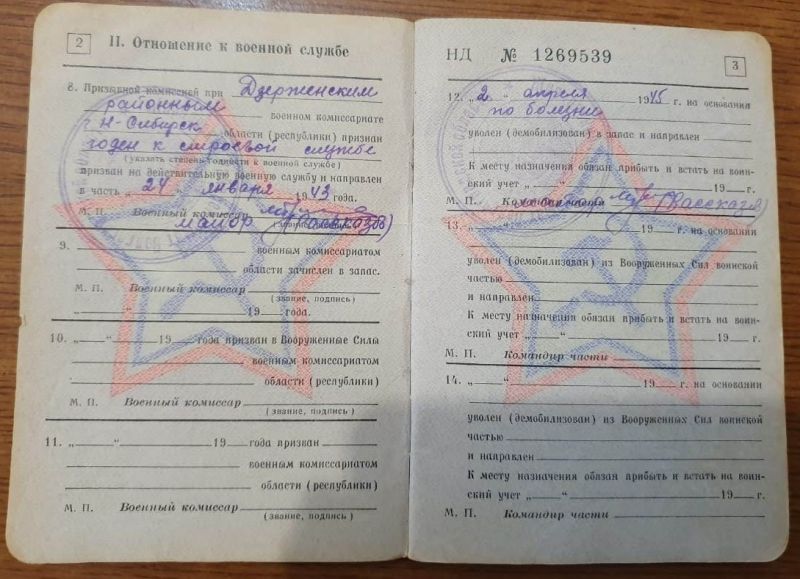 2
II. Отношение к военной службе
8. Призывной комиссией при Дзерженским
районным военном комиссариате
г Н-Сибирск области (республики) признан
годен к строевой службе
(указать степень годности к военной службе)
призван на действительную военную службу и направлен
в часть „24" января 1943 года.
М. П. Военный комиссар
майор (Рассказов)
9.
военным комиссариатом
области зачислен в запас.
М. П. Военный комиссар
(звание, подпись)
„ " 19 года.
10. „ " 19 года призван в Вооруженные Силы
военным комиссариатом
области (республики)
М. П. Военный комиссар
(звание, подпись)
11. „ " 19 года призван
военным комиссариатом
области (республики)
М. П. Военный комиссар
(звание, подпись)
НД № 1269539
3
12. „2" апреля 1945 г. на основании
по болезни
уволен (демобилизован) в запас и направлен
К месту назначения обязан прибыть и встать на воин-
ский учет „ " 19 г.
М. П. Командир части
13. „ " 19 г. на основании
уволен (демобилизован) из Вооруженных Сил воинской
частью
и направлен
К месту назначения обязан прибыть и встать на воин-
ский учет „ " 19 г.
М. П. Командир части
14. „ " 19 г. на основании
уволен (демобилизован) из Вооруженных Сил воинской
частью
и направлен
К месту назначения обязан прибыть и встать на воин-
ский учет „ " 19 г.
М. П. Командир части